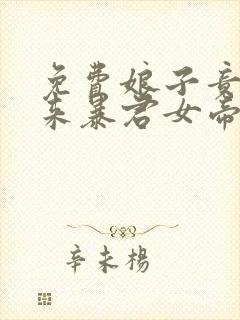 免費娘子竟
未暴君女帝
辛未楊